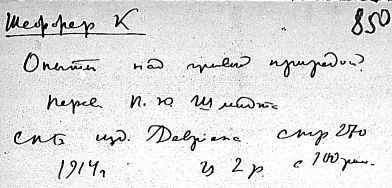 Шеффер К 850
Опыты над живой природой
перев П. Ю Шмидта
СПБ изд. Девриена стр 270
1914г ц 2 р. с 100 рис.